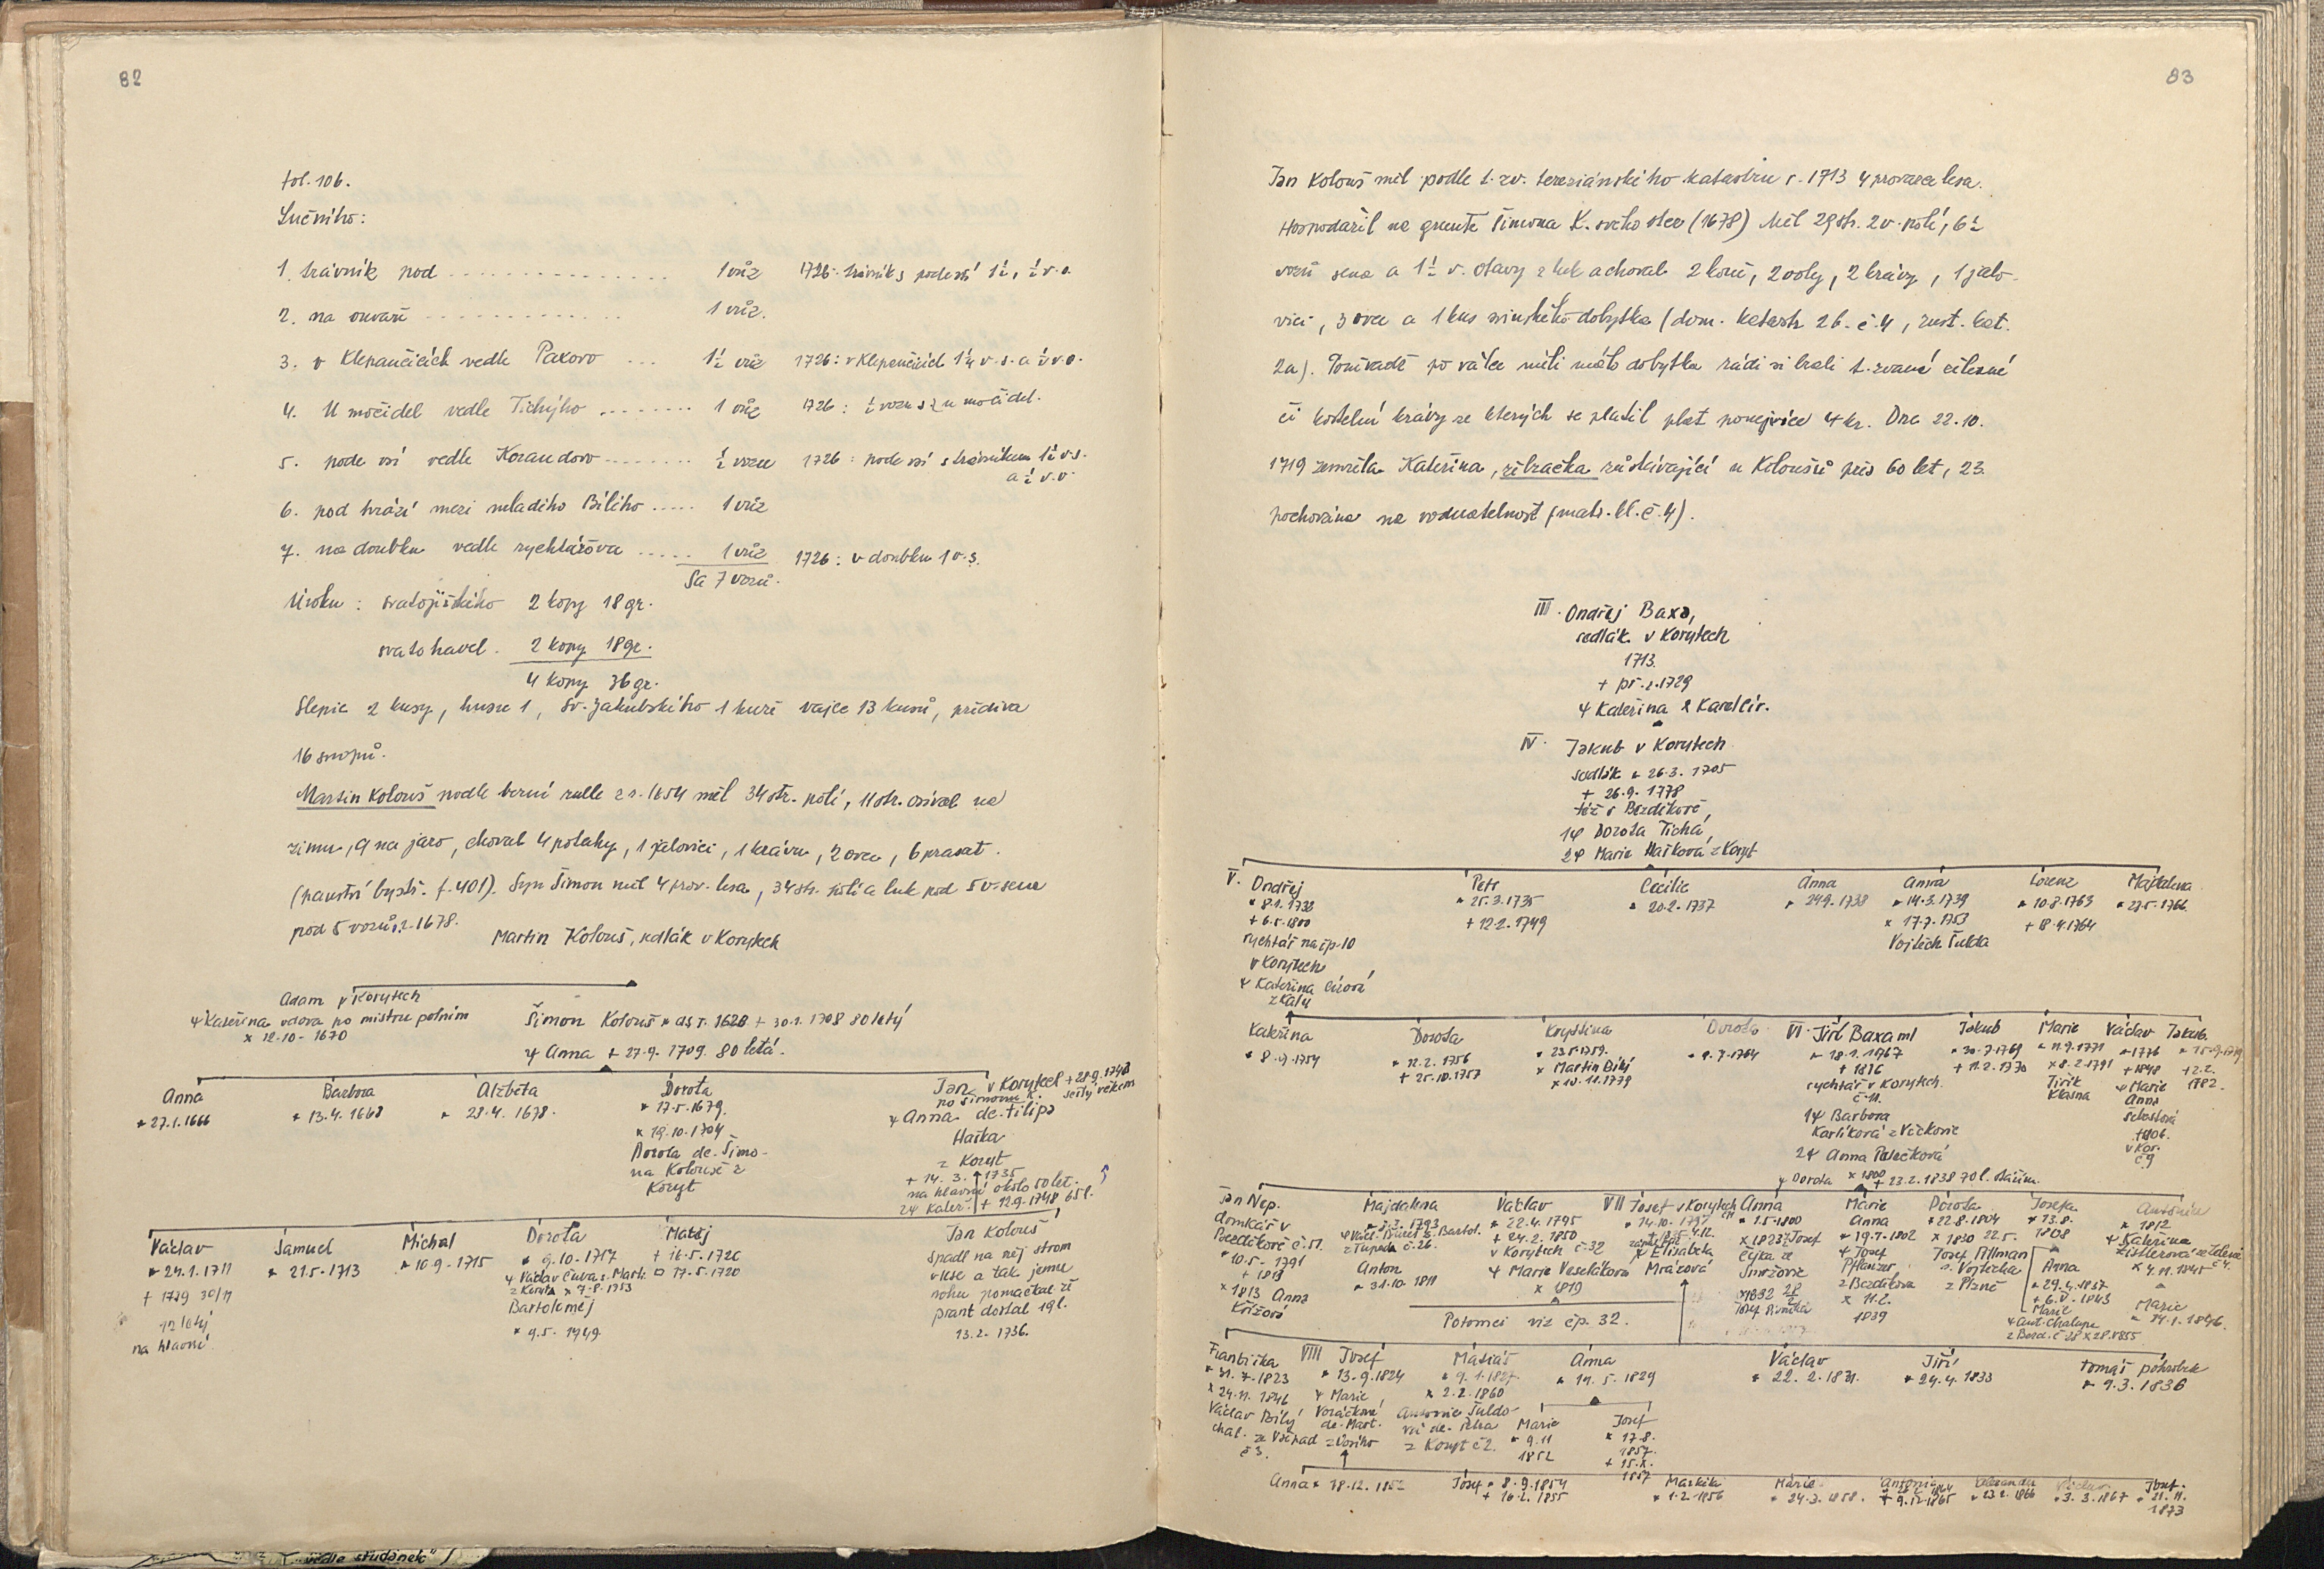 82
fol. 106.
Lučního:
1. trávník pod - - - - - 1 vůz 1726: trávník s pode vsí 1½, ½ v. o.
2. na ouvaří - - - - - 1 vůz.
3. v Klepančicích vedle Paxovo - - - 1½ vůz 1726: v Klepančicích 1¼ v. s. a ½ v. o.
4. U močidel vedle Tichýho - - - - 1 vůz 1726: ½ vozu s z u močidel.
5. pode vsí vedle Korandovo - - - - ½ vozu 1726: pode vsí s trávníkem 1½ v. s.
a ½ v. o.
6. pod hrází mezi mladiho Bílího ..... 1 vůz
7. na doubku vedle rychtářova ..... 1 vůz 1726: v doubku 1 v. s.
Sa 7 vozů.
Úroku: svatojiřského 2 kopy 18 gr.
svatohavel. 2 kopy 18 gr.
4 kopy 36 gr.
Slepic 2 kusy, husu 1, Sv. Jakubskiho 1 kuře vajec 13 kusů, přídiva
16 snopů.
Martin Kolouš podle berní rulle z r. 1654 měl 34 str. polí, 11 str. osíval na
zimu, 9 na jaro, choval 4 potahy, 1 jalovici, 1 krávu, 2 ovce, 6 prasat.
f. 401). Syn Šimon měl 4 prov. lesa, 34 str. polí a luk pod 5 v. sena
pod 5 vozů, r. 1678.
Martin Kolouš, sedlák v Korytech
Adam v Korytech
Kateřina vdova po mistru polním
x 12.10. 1670
Šimon Kolouš * as r. 1628 + 30.1. 1708 80 letý
Anna + 27.9. 1709. 80 letá.
Anna
* 27.1.1666
Barbora
* 13.4. 1668
Alžběta
* 28.4. 1678.
Dorota
* 17.5.1679.
x 19.10.1704
Dorota dc. Šimo-
na Kolouše z
Koryt
Jan v Korytech + 28.9.1748
po Šimonu K. sešlý věkem
Anna dc. Filipa
Haška
z Koryt
+ 14. 3. 1735
na hlavní okolo 50 let.
2 Kateř. + 12.9.1748 65 l.
Václav
* 24.1.1711
+ 1729 30/11
12 letý
na hlavni
Samuel
* 21.5.1713
Michal
* 10.9.1715
Dorota
* 9.10.1717
Václav Čuva s. Mart.
z Koryta x 7.8.1753
Bartoloměj
* 9.5. 1749
Matěj
+ 16.5.1720
17.5.1720
Jan Kolouš
spadl na něj strom
v lese a tak jemu
nohu pomačkal že
prant dostal 19 l.
13.2. 1736.
83
Jan Kolouš měl podle t. zv. tereziánskiho katastru r. 1713 4 provazce lesa.
Hospodařil na gruntě Šimona K. svého otce (1678) Měl 29 str. 2 v. polí, 6½
vozů sena a 1½ v. otavy z luk a choval 2 koně, 2 voly, 2 krávy, 1 jalo-
vici, 3 ovce a 1 kus svinského dobytka (dom. katastr 26. č. 4, rust. kat.
2a). Poněvadž po válce měli málo dobytka rádi si brali t. zvané
či kostelní krávy ze kterých se platil plat ponejvíce 4 kr. Dne 22.10.
1719 zemřela Kateřina, žebračka zůstávající u Koloušů přes 60 let, 23.
pochována na (matr. Ll. č. 4).
III. Ondřej Baxa,
sedlák v Korytech
1713.
+ př. r. 1729
Kateřina
IV. Jakub v Korytech
sedlák * 26.3. 1705
+ 26.9. 1778
též v Bezděkově,
1 Dorota Tichá,
2 Marie Hašková z Koryt
V. Ondřej
* 8.1. 1732
+ 6.5.1800
rychtář na čp. 10
v Korytech
Kateřina
Petr
* 25.3.1735
+ 12.2. 1749
Cecilie
* 20.2. 1737
Anna
* 24.9. 1738
Anna
* 14.3. 1739
x 17.7.1753
Vojtěch Šulda
Lorenz
* 10.8.1763
+ 18.4.1764
Majdalena
* 27.5. 1766
Kateřina
* 8.9.1754
Dorota
* 12.2. 1756
+ 25.10.1757
Krystina
* 23.5.1759.
x Martin Bílý
x 10.11.1779
Dorota
* 9.7.1764
VI. Jiří Baxa ml
* 18.1. 1767
+ 1816
rychtář v Korytech
č. 11.
1 Barbora
Karlíková z Váckovic
2 Anna
Dorota x 1800 + 23.2.1838 70 l.
Jakub
* 30.7.1769
+ 11.2. 1770
Marie
* 11.9.1771
x 8.2.1791
Jiřík
Klasna
Václav
* 1776
+ 1848
Marie
Anna
+ 1806.
v Kor.
č. 9
Jakub
+ 2.2.
1782.
Jan Nep.
domkář v
Bezděkově č. 51.
* 10.5. 1791
x 1813 Anna
Křížová
Majdalena
* 3.3. 1793
č. 26.
Anton
* 31.10. 1811
Václav
* 22.4. 1795
+ 24.2. 1850
v Korytech č. 32
Marie Veselákova
x 1819
Potomci viz čp. 32.
VII Josef v Korytech
* 14.10. 1797
x Elisabeta
Mrázová
Anna
* 1.5.1800
x 1823 Josef
Čejka ze
Smržovic
Marie
Anna
* 19.7.1802
Josef
Pflanzer
z Bezděkova
x 11.2.
1839
Dorota
* 22.8.1804
x 1830 22.5.
Josef Altman
s. Vojtěcha
z Plzně
Josefa
* 13.8.
1808
Anna
* 29.4.1837
+ 6.V.1843
Marie
Ant. Chalupa
z Bezd. č. 28 x 28.1855
Antonín
* 1812
Kateřina
x 4.11.1845
Marie
* 24.1.1846.
Františka
* 31.7.1823
x 24.11.1846
Václav Bílý
chal.
č 3.
VIII Josef
* 13.9.1824
Marie
Voráčková
dc. Mart.
Matiáš
* 9.1.1827
x 2.2.1860
Antonie Šuldo-
vá dc. Petra
z Koryt č 2.
Anna
* 19.5.1829
Marie
* 9.11
1852
Josef
* 17.8.
1857.
+ 15.X.
1857
Václav
* 22.2.1831.
Jiří
* 24.4.1833
Tomáš pohrobek
* 9.3.1836
Anna * 18.12. 1852
Josef * 8.9.1854
+ 16.2. 1855
Markéta
* 1.2.1856
Marie
* 24.3.1858.
Antonie
+ 9.12.1865
* 23.2.1866
Václav
* 3.3.1867
Josef.
* 21.11.
1873
vedle studánek"